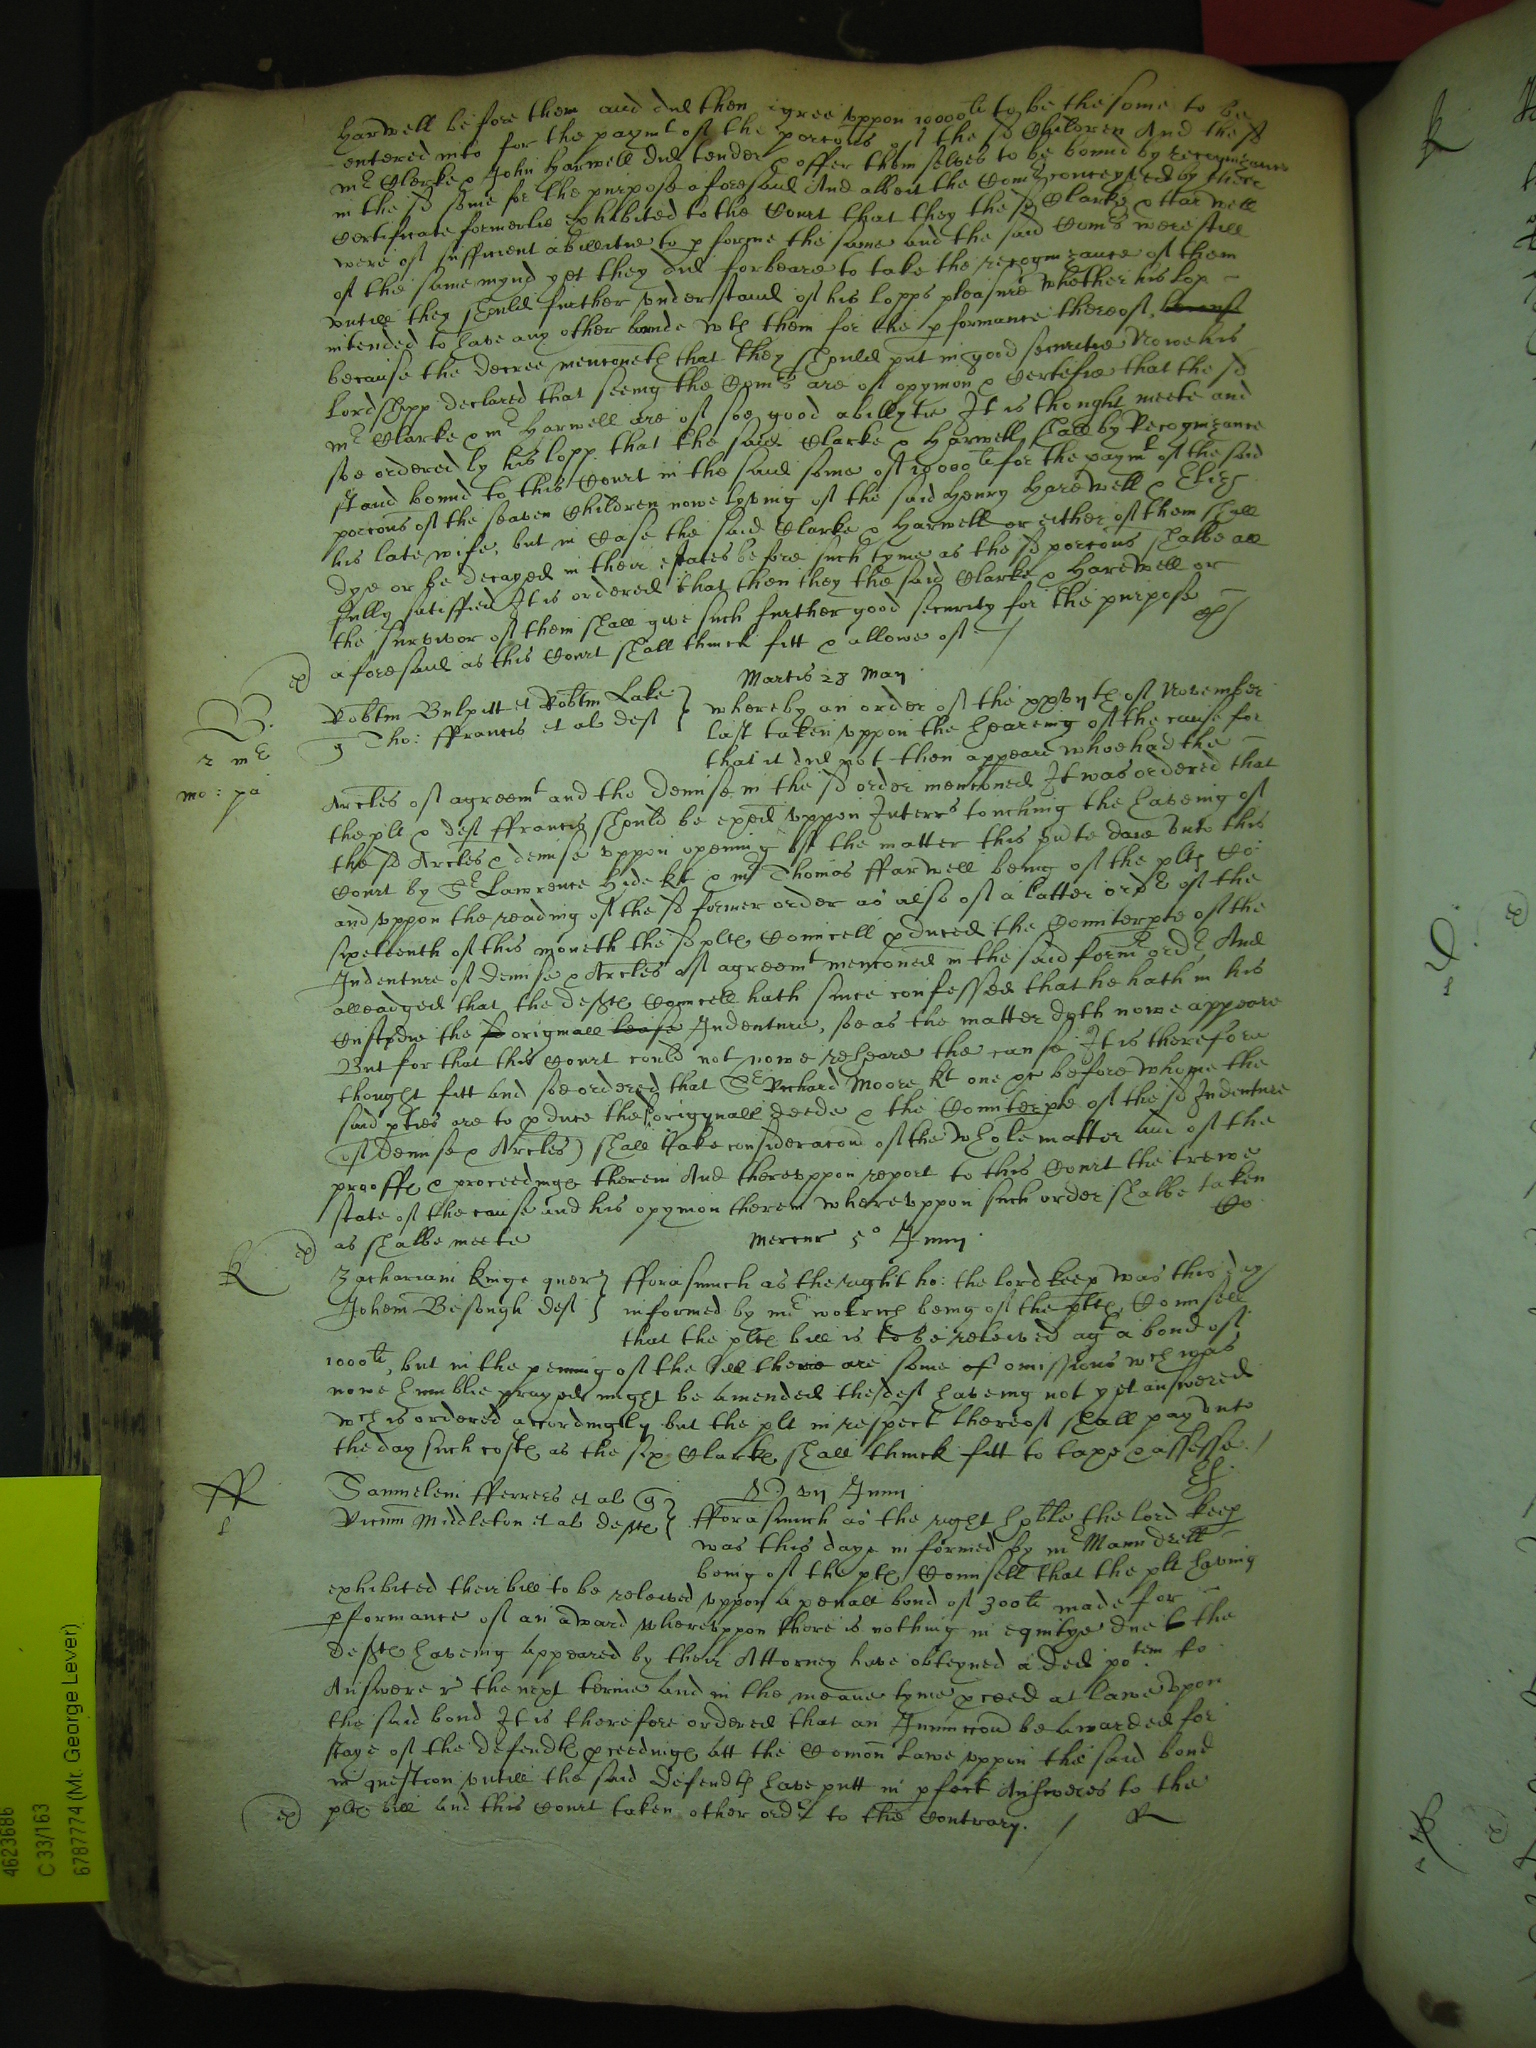 Harwell before them and did then agree uppon 10000li to be the some to be
entered into for the paymt of the porcons of the sd Children And the sd
mr Clarke & John Harwell did tender & offer them selves to be bound by recognizaunce
in the sd some for the purpose aforesaid And albeit the Comrs conceyved by their
Certificate formerlie exhibited to the Court that they the sd Clarke & Harwell
were of sufficient abillitie to pforme the same and the said Comrs were still
of the same mynd yet they did forbeare to take the recognizance of them
untill they should further understand of his lopps pleasure whether his lopp
intended to have any other bound wth them for the pformance thereof,
because the decree menconeth that they should put in good securitie Nowe his
Lordshipp declared that seeing the Comrs are of opynion & Certefie that the sd
mr Clarke & mr Harwell are of soe good abillytie It is thought meete and
soe ordered by his lopp that the said Clarke & Harwell shall by Recognizance
stand bound to this Court in the said some of 10000li for the paymt of the said
porcons of the seaven Children nowe lyving of the said Henry Harewell & Eliz
his late wife, but in Case the said Clarke & Harwell or either of them shall
dye or be decayed in their estates before such tyme as the sd porcons shalbe all
fully satisfied It is ordered that then they the said Clarke & Harewell or
the survivor of them shall give such further good security for the purpose
aforesaid as this Court shall thinck fitt & allowe of
Martis 28 May
B.
Robtm Bulpitt et Robtm Lake
Tho: ffrancis et al deft
whereby an order of the xxvijth of November
last taken uppon the heareing of the cause for
that it did not then appeare whoe had the
2 mr
mo: pa
Arcles of agreemt and the demise in the sd order menconed It was ordered that
the plt & deft ffrancis should be exed uppon Interrs touching the haveing of
the sd Arcles & demise uppon opening of the matter this pnte daie unto this
Court by Sr Lawrence Hide kt & mr Thomas ffarwell being of the plts Co:
and uppon the reading of the sd former order as also of a latter ordr of the
sixeteenth of this moneth the sd plts Councell pduced the Counterpte of the
Indenture of demise & Arcles of agreemt menconed in the said form ordr And
alleadged that the defts Councell hath since confessed that he hath in his
Custodie the sd originall lease Indenture, soe as the matter doth nowe appeare
But for that this Court could not nowe reheare the cause It is therefore
thought fitt and soe ordered that Sr Richard Moore kt one &c before whome the
said pties are to pduce the origynall deede & the Counterpte of the sd Indenture
of demise & Arcles) shall take consideracon of the whole matter and of the
prooffs & proceedings therein And thereuppon report to this Court the trewe
state of the cause and his opynion therein whereuppon such order shalbe taken
as shalbe meete
Co
Mercur 5o Junij
K
Zachariam Kinge quer
Johem Besough deft
fforasmuch as the right ho: the lord keep was this day
informed by mr being of the plts Counsell
that the plts bill is to be releived agt a bond of
1000li, but in the pening of the bill there are some omissions wch was
nowe humblie prayed might be amended the deft haveing not yet answered
wch is ordered accordingly but the plt in respect thereof shall pay unto
the day such costs as the six Clarks shall thinck fitt to taxe & assesse
ff
Samuelem fferrers et al q
Middleton et al defts
vij Junij
fforasmuch as the right hoble the lord keep
was this daye informed by mr Maundrell
being of the plts Counsell that the plt having
exhibited their bill to be releived uppon a penall bond of 300li made for
pformance of an award whereuppon there is nothing in equitye due the
defts haveing appeared by their Attorney have obteyned a ded potem to
Answere the next terme and in the meane tyme pceed at lawe upon
the said bond It is therefore ordered that an Iniunccon be awarded for
staye of the defendts pceedings att the Comon Lawe uppon the said bond
in question untill the said Defendts have putt in pfect Answeres to the
plts bill and this Court taken other ordr to the Contrary.
4623686
C 33/163
6787774 (Mr. George Lever)